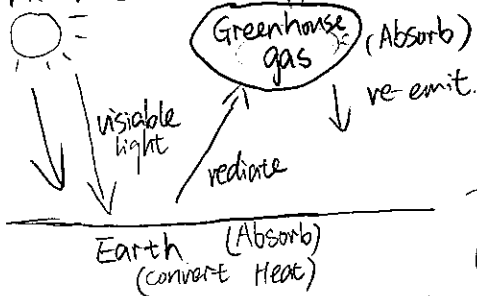 Greenhouse
gas
(Absorb)
re-emit.
visiable
light
rediate
Earth (Absorb)
(convert Heat)